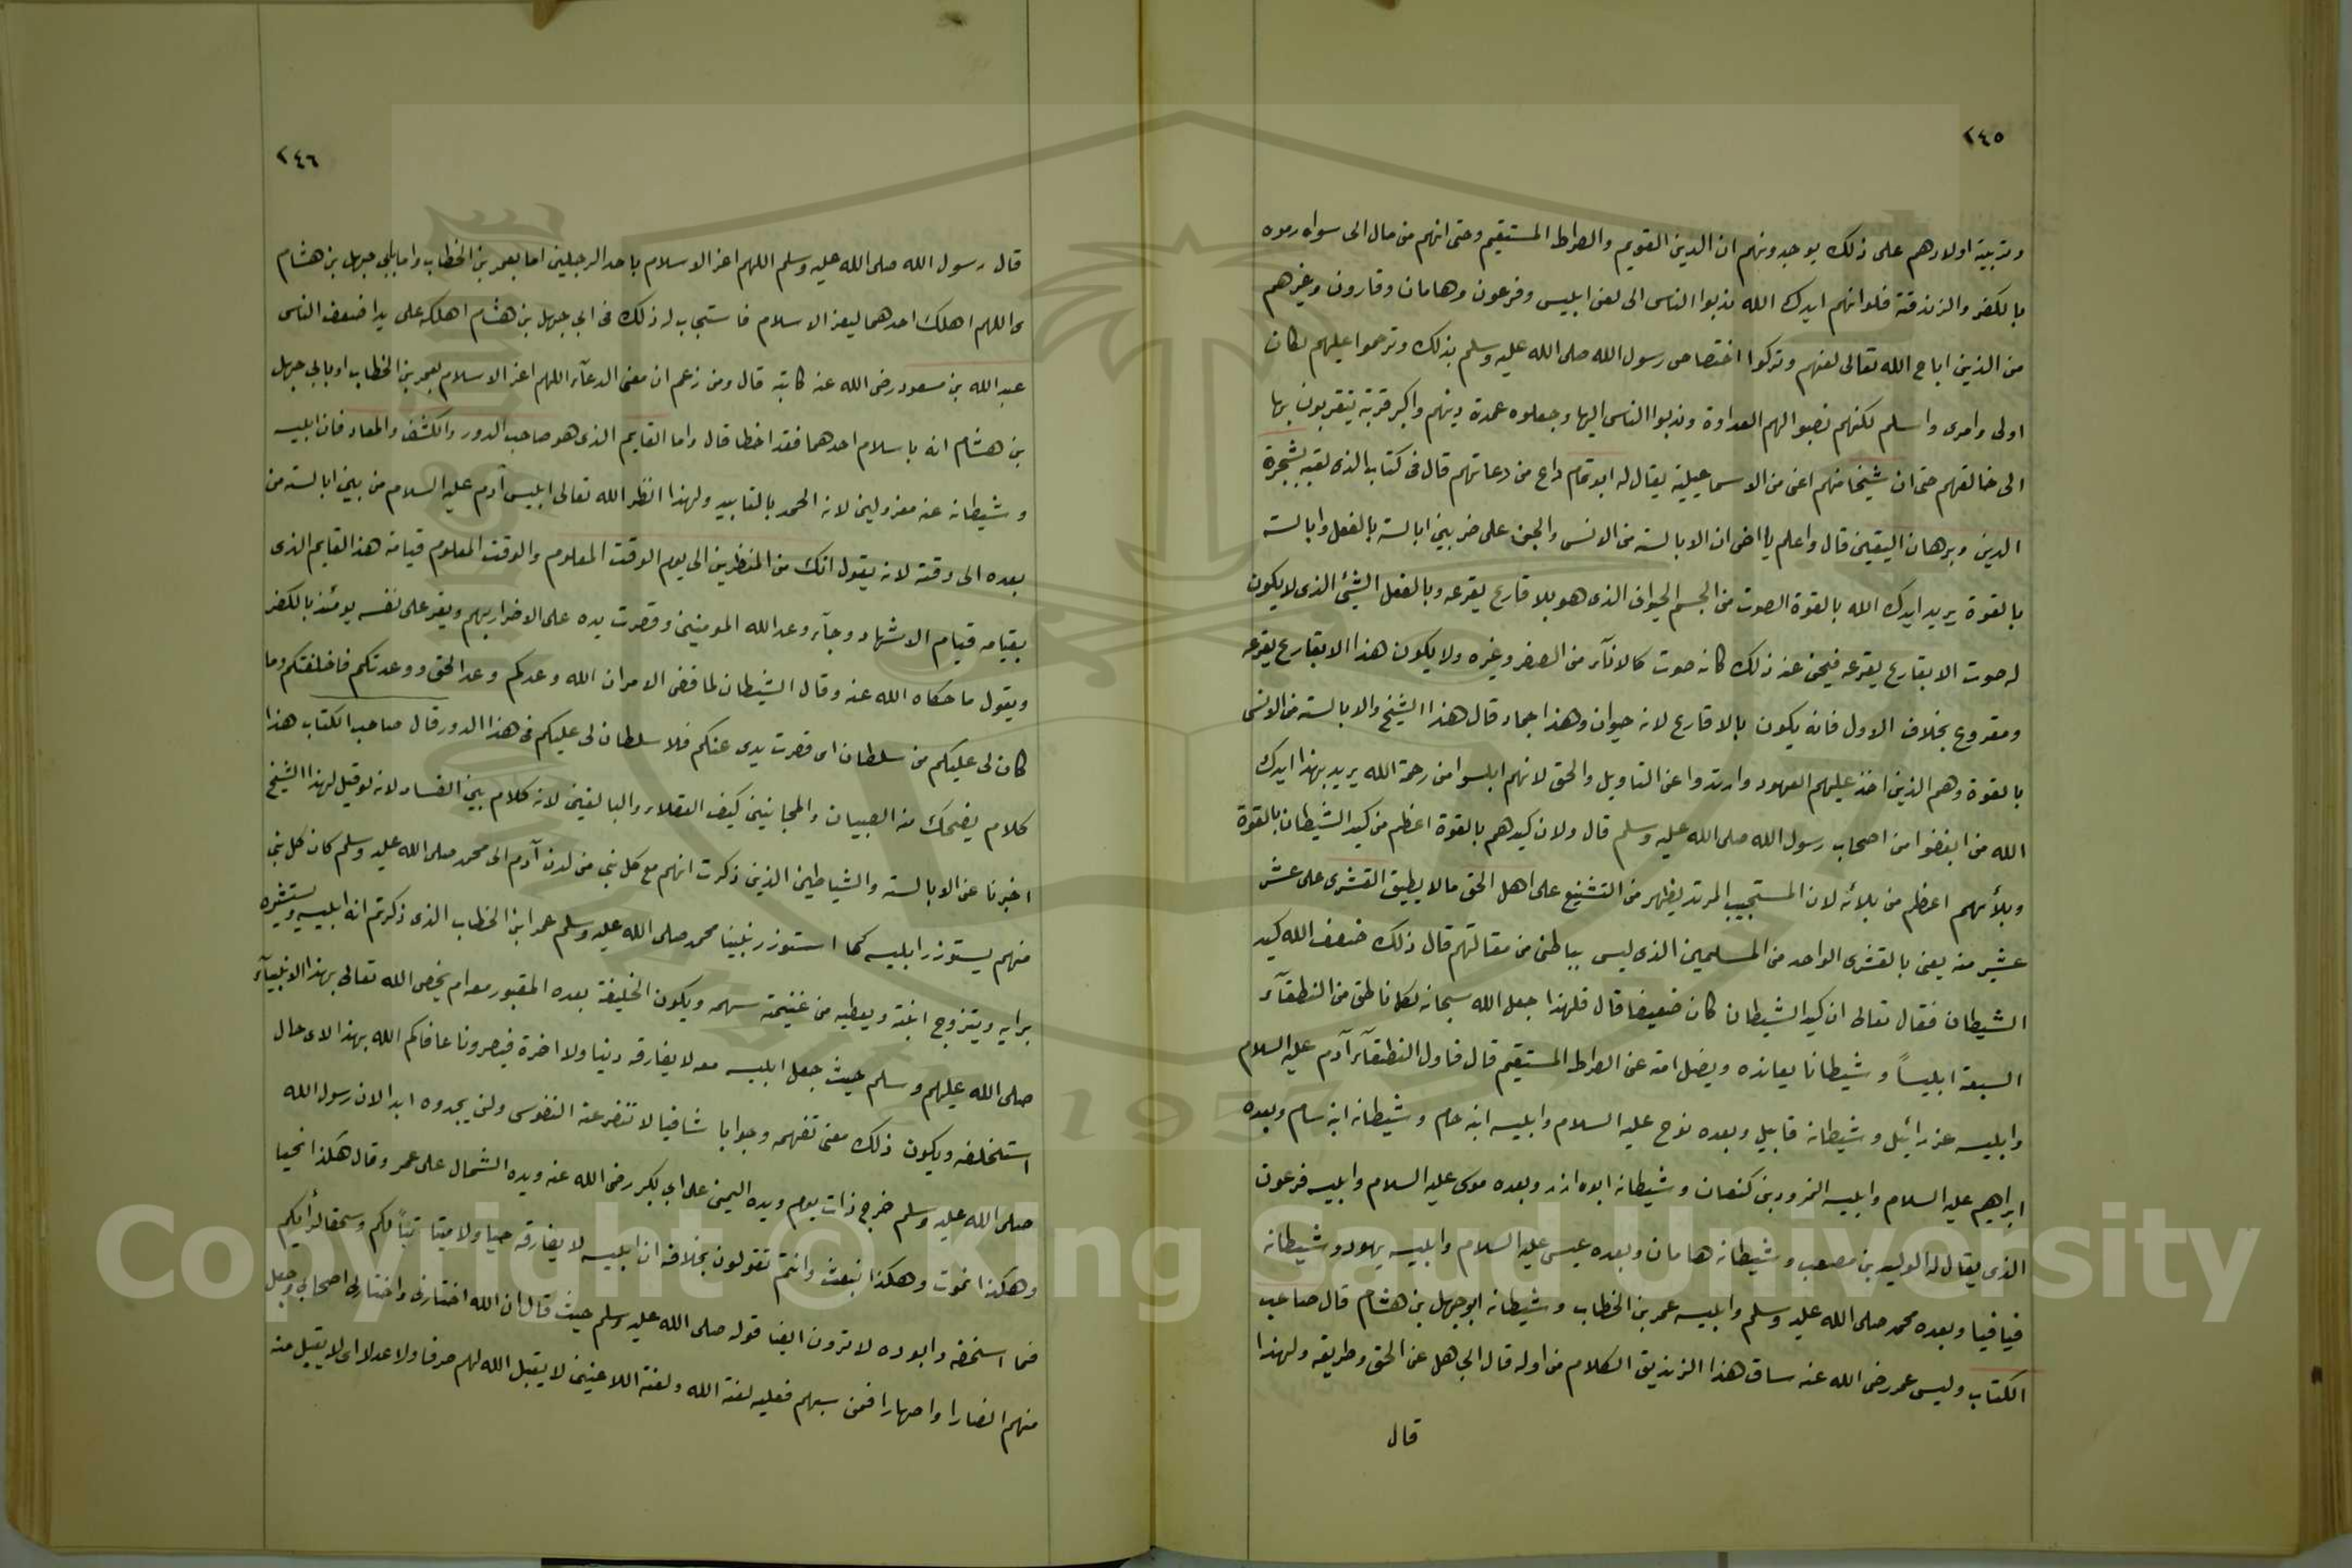 ٢٤٥
وتربية اولادهم على ذلك يوجدونهم ان الدين القويم والصراط المستقيم وحتى انهم من مال الى سواه رموه
بالكفر والزندقة فلوانهم ايدك الله ندبوا الناس الى لعن ابليس وفرعون وهامان وقارون وغيرهم
من الذين اباح الله تعالى لعنهم وتركوا اختصاص رسول الله صلى الله عليه وسلم بذلك وترحموا عليهم لكان
اولى واحرى واسلم لكنهم نصبوا لهم العداوة وندبوا الناس اليها وجعلوه عمدة دينهم واكبر قربة يتقربون بها
الى خالقهم حتى ان شيخا منهم اعنى من الاسماعيلية يقال له ابوتمام داع من دعاتهم قال فى كتاب الذى لقبه بشجرة
الدين وبرهان اليقين قال واعلم يا اخى ان الابالسة من الانس والجن على ضربين ابالسة بالفعل وابالسة
بالقوة يريد ايدك الله بالقوة الصوت من الجسم الحيوانى الذى هو بلا قارع يقرعه وبالفعل الشيئ الذى لا يكون
له صوت الا بقارع يقرعه فيحن عند ذلك كانه صوت كالاناء من الصفر وغيره ولا يكون هذا الا بقارع يقرعه
ومقروع بخلاف الاول فانه يكون بالا قارع لانه حيوان وهذا جماد قال هذا الشيخ والابالسة من الانس
بالقوة وهم الذين اخذ عليهم العهود وارتدوا عن التاويل والحق لانهم ابلسوا من رحمة الله يريد بهذا ايدك
الله من ابغضوا من اصحاب رسول الله صلى الله عليه وسلم قال ولان كيدهم بالقوة اعظم من كيد الشيطان بالقوة
وبلأئهم اعظم من بلائه لان المستجيب المرتد يظهر من التشنيع على اهل الحق مالا يطيق القشرى على عشر
عشير منه يعنى بالقشرى الواحد من المسلمين الذى ليس بباطنى من مقالتهم قال ذلك ضعف الله كيد
الشيطان فقال تعالى ان كيد الشيطان كان ضعيفا قال فلهذا جعل الله سبحانه لكل ناطق من النطقآء
السبعة ابليساً وشيطانا يعانده ويضل امته عن الصراط المستقيم قال فاول النطقآء آدم عليه السلام
وابليسه عزرائيل وشيطانه قابيل وبعده نوح عليه السلام وابليسه ابنه حام وشيطانه ابنه سام وبعده
ابراهيم عليه السلام وابليسه النمرود بن كنعان وشيطانه ابوه ازر وبعده موسى عليه السلام وابليسه فرعون
الذى يقال له الوليد بن مصعب وشيطانه هامان وبعده عيسى عليه السلام وابليسه يهود وشيطانه
قيافيا وبعده محمد صلى الله عليه وسلم وابليسه عمر بن الخطاب وشيطانه ابوجهل بن هشام قال صاحب
الكتاب وليس عمر رضى الله عنه ساق هذا الزنديق الكلام من اوله قال ابى هل عن الحق وطريقه ولهذا
قال
٢٤٦
قال رسول الله صلى الله عليه وسلم اللهم اعز الاسلام باحد الرجلين اما بعمر بن الخطاب واما بابى جهل بن هشام
اللهم اهلك احدهما ليعز الاسلام فاستجاب له ذلك فى ابى جهل بن هشام اهلكه على يد اضعف الناس
عبد الله بن مسعود رضى الله عنه كاتبه قال ومن زعم ان معنى الدعآء اللهم اعز الاسلام بعمر بن الخطاب او بابى جهل
بن هشام انه باسلام احدهما فقد اخطا قال واما القايم الذى هو صاحب الدور والكشف والمعاد فان ابليسه
وشيطانه عنه معزولين لانه الحمد بالتاييد ولهذا انظر الله تعالى ابليس آدم عليه السلام من بين ابالسة من
بعده الى وقته لانه يقول انك من المنظرين الى يوم الوقت المعلوم والوقت المعلوم قيامة هذا القايم الذى
بقيامه قيام الاشهاد وجآء وعد الله المومنين وقصرت يده على الاضرار بهم ويقر على نفسه يومئذ بالكفر
ويقول ما حكاه الله عنه وقال الشيطان لما قضى الامر ان الله وعدكم وعد الحق ووعدتكم فاخلفتكم وما
كان لى عليكم من سلطان اى قصرت يدى عنكم فلا سلطان لى عليكم فى هذا الدور قال صاحب الكتاب هذا
كلام يضحك منه الصبيان والمجانين كيف العقلاء والبالغين لانه كلام بين الفساد لانه لو قيل لهذا الشيخ
اخبرنا عن الابالسة والشياطين الذين ذكرت انهم مع كل نبى من لدن آدم الى محمد صلى الله عليه وسلم كان كل نبى
منهم يستوزر ابليسه كما استوزر نبينا محمد صلى الله عليه وسلم عمر ابن الخطاب الذى ذكرتم انه ابليسه ويستشيره
برايه ويتزوج ابنته ويعطيه من غنيمة سهمه ويكون الخليفة بعده المقبور معه ام يخص الله تعالى بهذا الانبيآء
صلى الله عليهم وسلم حيث جعل ابليسه معه لا يفارقه دنيا ولا اخرة فبصرونا عافاكم الله بهذا لاى حال
استخلفه ويكون ذلك معنى تفهمه وجوابا شافيا لا تنفر عنه النفوس ولن يجدوه ابدا لان رسول الله
صلى الله عليه وسلم خرج ذات يوم ويده اليمنى على ابى بكر رضى الله عنه ويده الشمال على عمر وقال هكذا نحيا
وهكذا نموت وهكذا نبعث وانتم تقولون بخلافه ان ابليسه لا يفارقه حيا ولا ميتا تباً لكم وسحقا لرأيكم
فما استخفه وابوده لا ترون ايضا قوله صلى الله عليه وسلم حيث قال ان الله اختارنى واختار لى اصحابى وجعل
منهم انصارا واصهارا فمن سبهم فعليه لعنة الله ولعنة اللاعنين لا يقبل الله لهم صرفا ولا عدلا اى لا يقبل منه
Copyright © King Saud University
1957